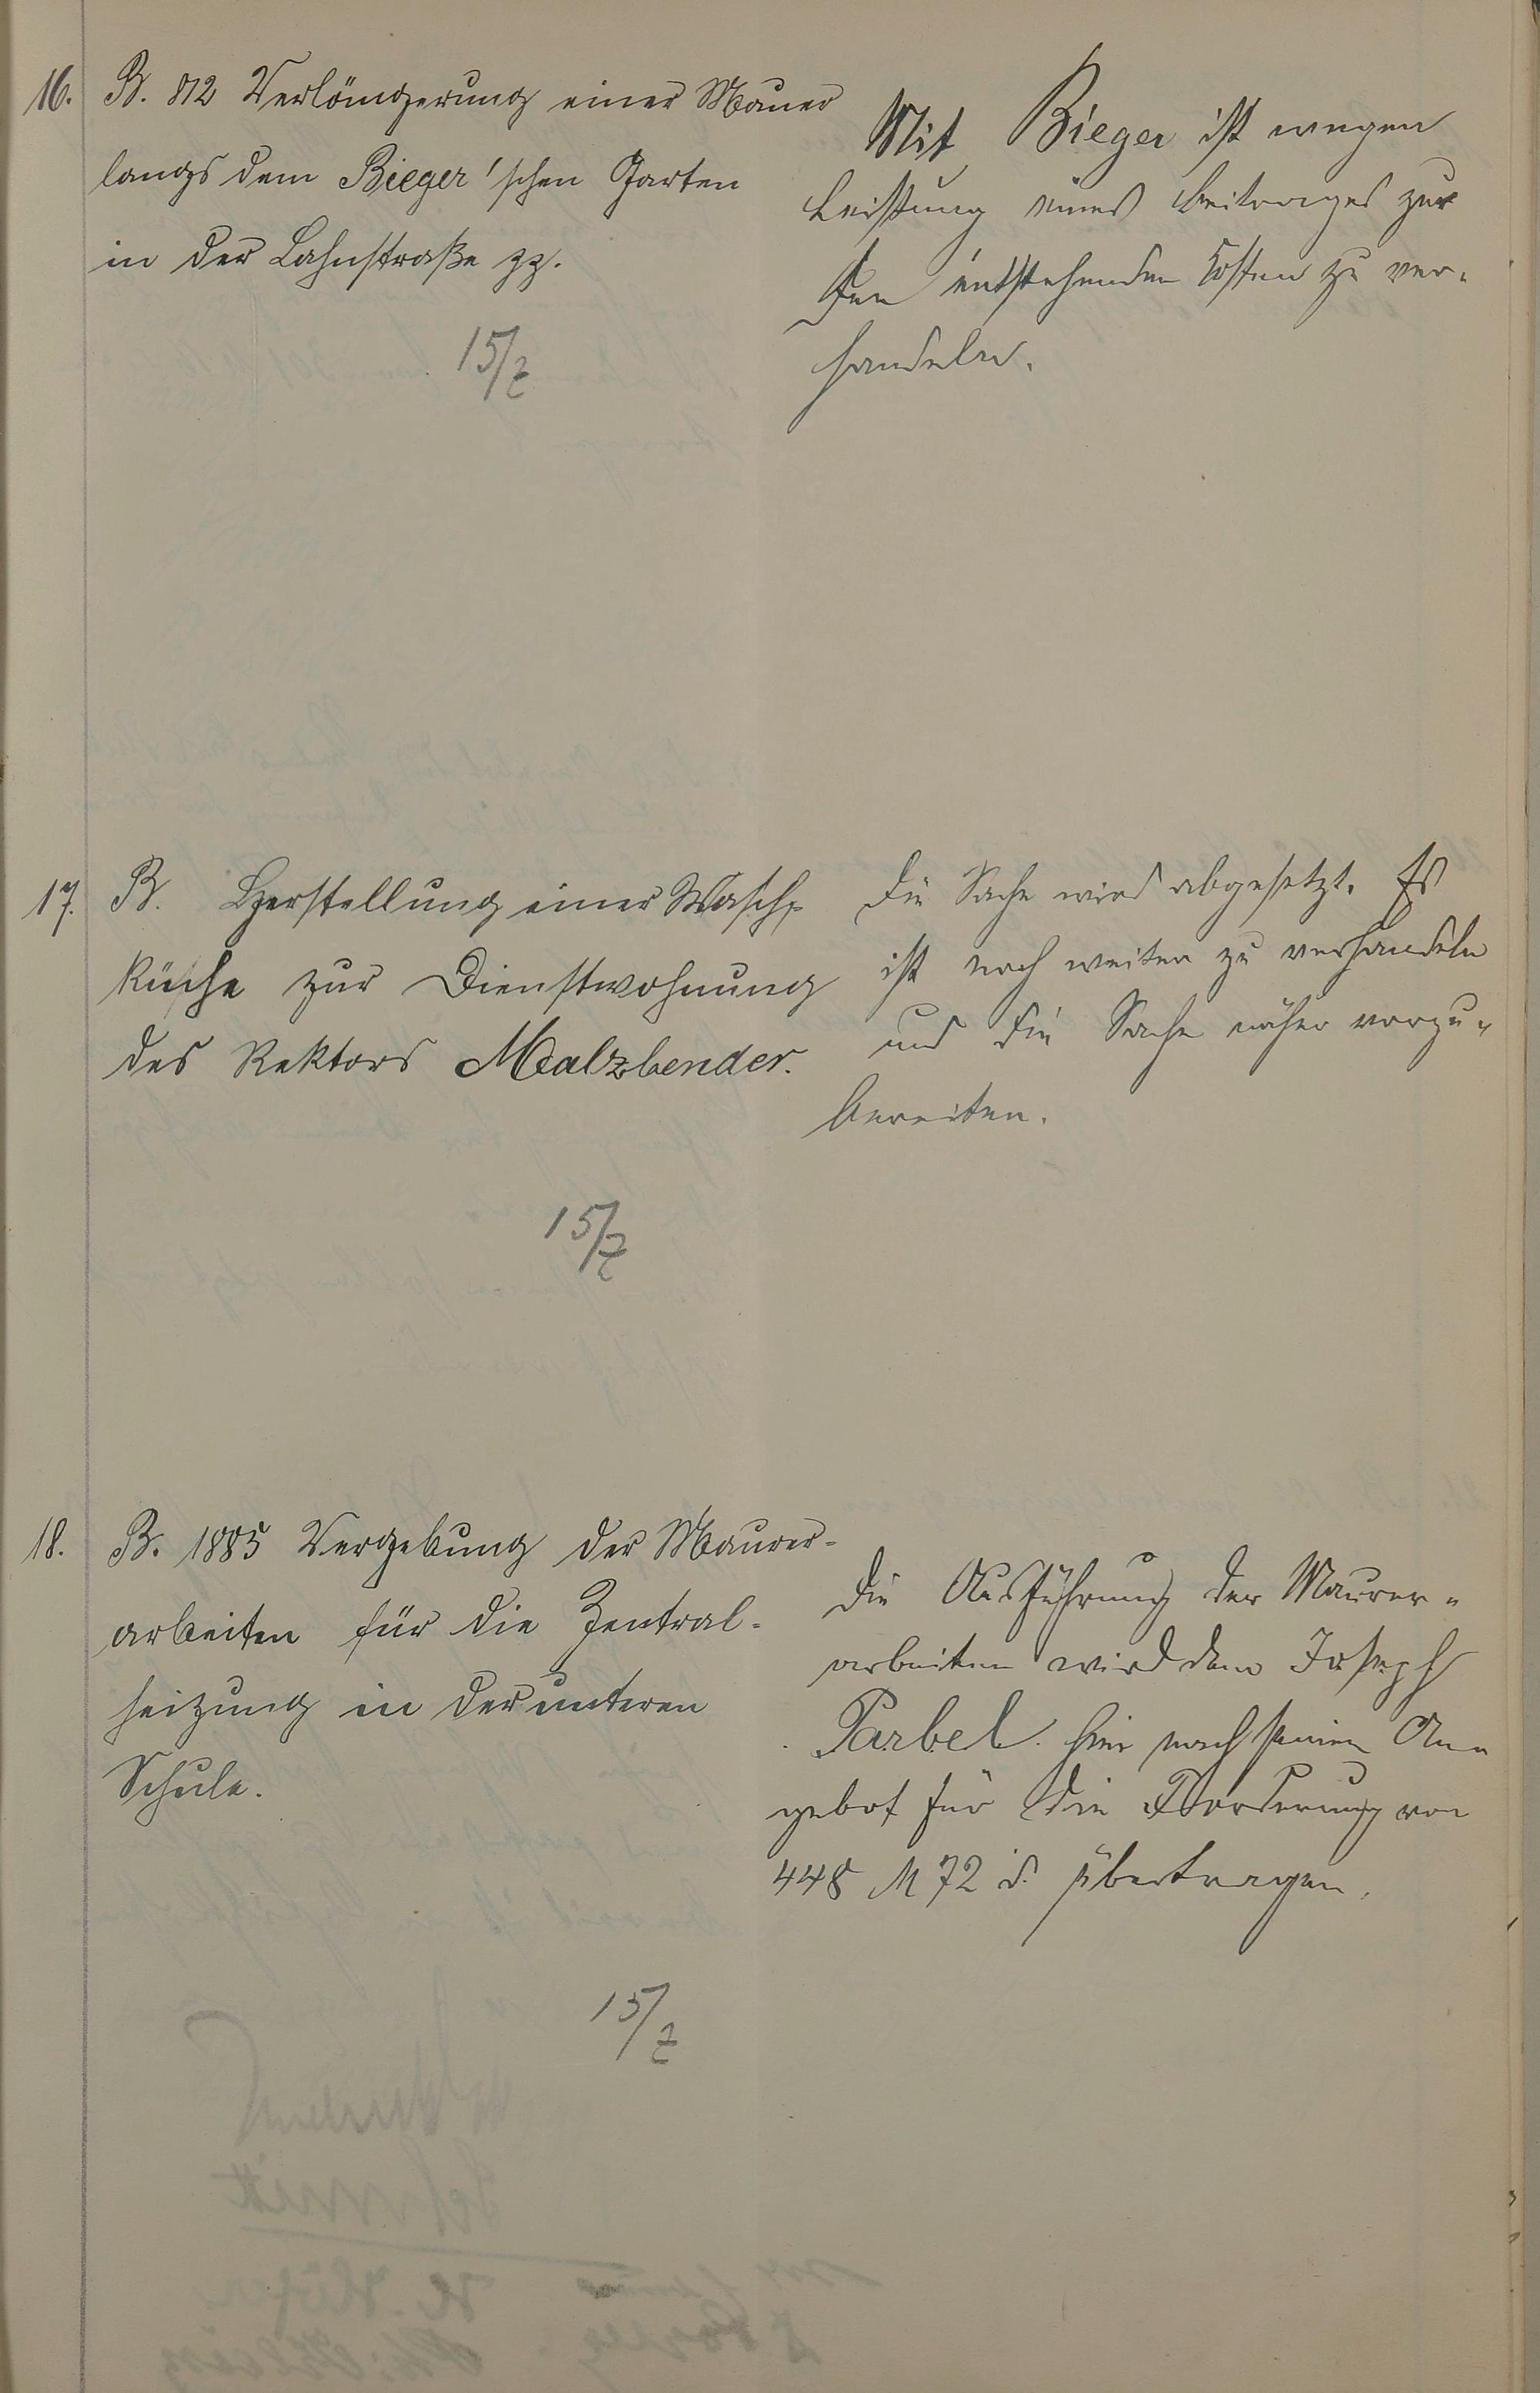 16.
B. 812 Verlängerung einer Mauer
langs dem Bieger'schen Garten
in der Lahnstraße pp.
15/7
Mit Bieger ist wegen
Leistung eines Beitrages zur
den entstehenden Kosten zu ver-
handeln.
17.
B. Herstellung einer Wasch-
küche zur Dienstwohnung
des Rektors Malzbender.
15/7
Die Sache wird abgesetzt. Es
ist noch weiter zu verhandeln
und die Sache näher vorzu-
bereiten.
18.
B. 1885 Vergebung der Maurer-
arbeiten für die Zentral-
heizung in der unteren
Schule.
15/7
Die Ausführung der Maurer-
arbeiten wird dem Joseph
Parbel hier nach seinem An-
gebot für die Forderung von
448 M 72 d. übertragen.